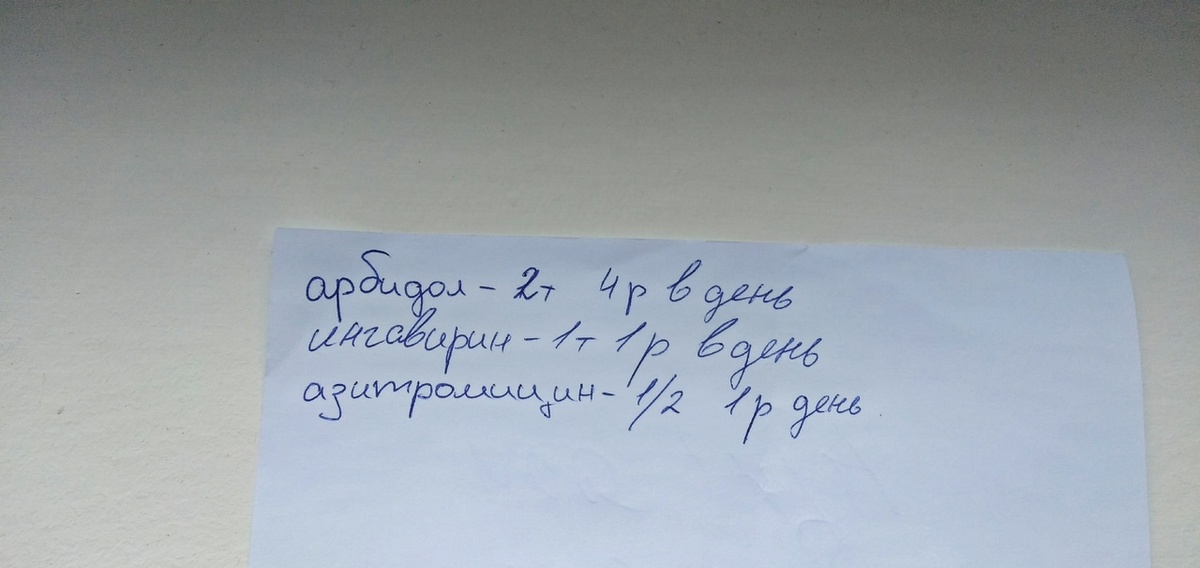 арбидол - 2т 4р в день
ингавирин - 1т 1р в день
азитромицин - 1/2 1р день